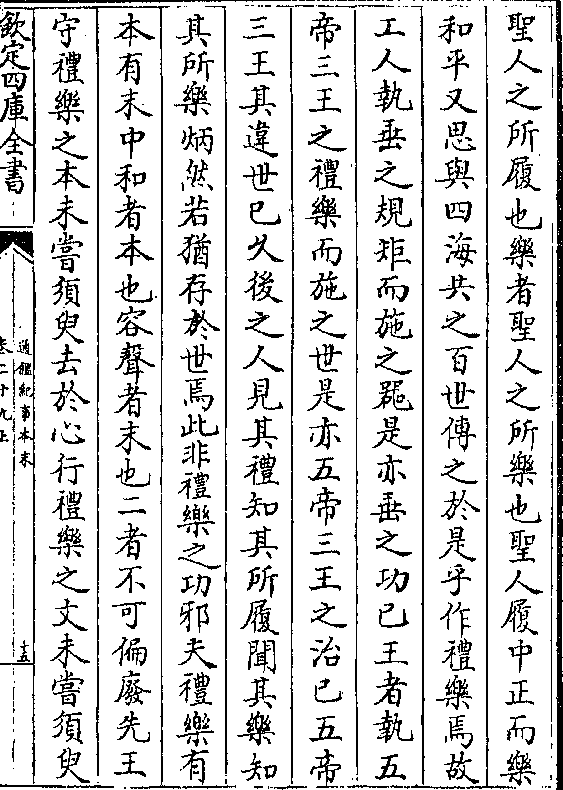 聖人之所履也樂者聖人之所樂也聖人履中正而樂
和平又思與四海共之百世傳之於是乎作禮樂焉故
工人執垂之規矩而施之器是亦垂之功已王者執五
帝三王之禮樂而施之世是亦五帝三王之治已五帝
三王其違世已久後之人見其禮知其所履聞其樂知
其所樂炳然若猶存於世焉此非禮樂之功邪夫禮樂有
本有末中和者本也容聲者末也二者不可偏廢先王
守禮樂之本未嘗須臾去於心行禮樂之文未嘗須臾
欽定四庫全書
通鑑紀事本末
卷二十九上
十五